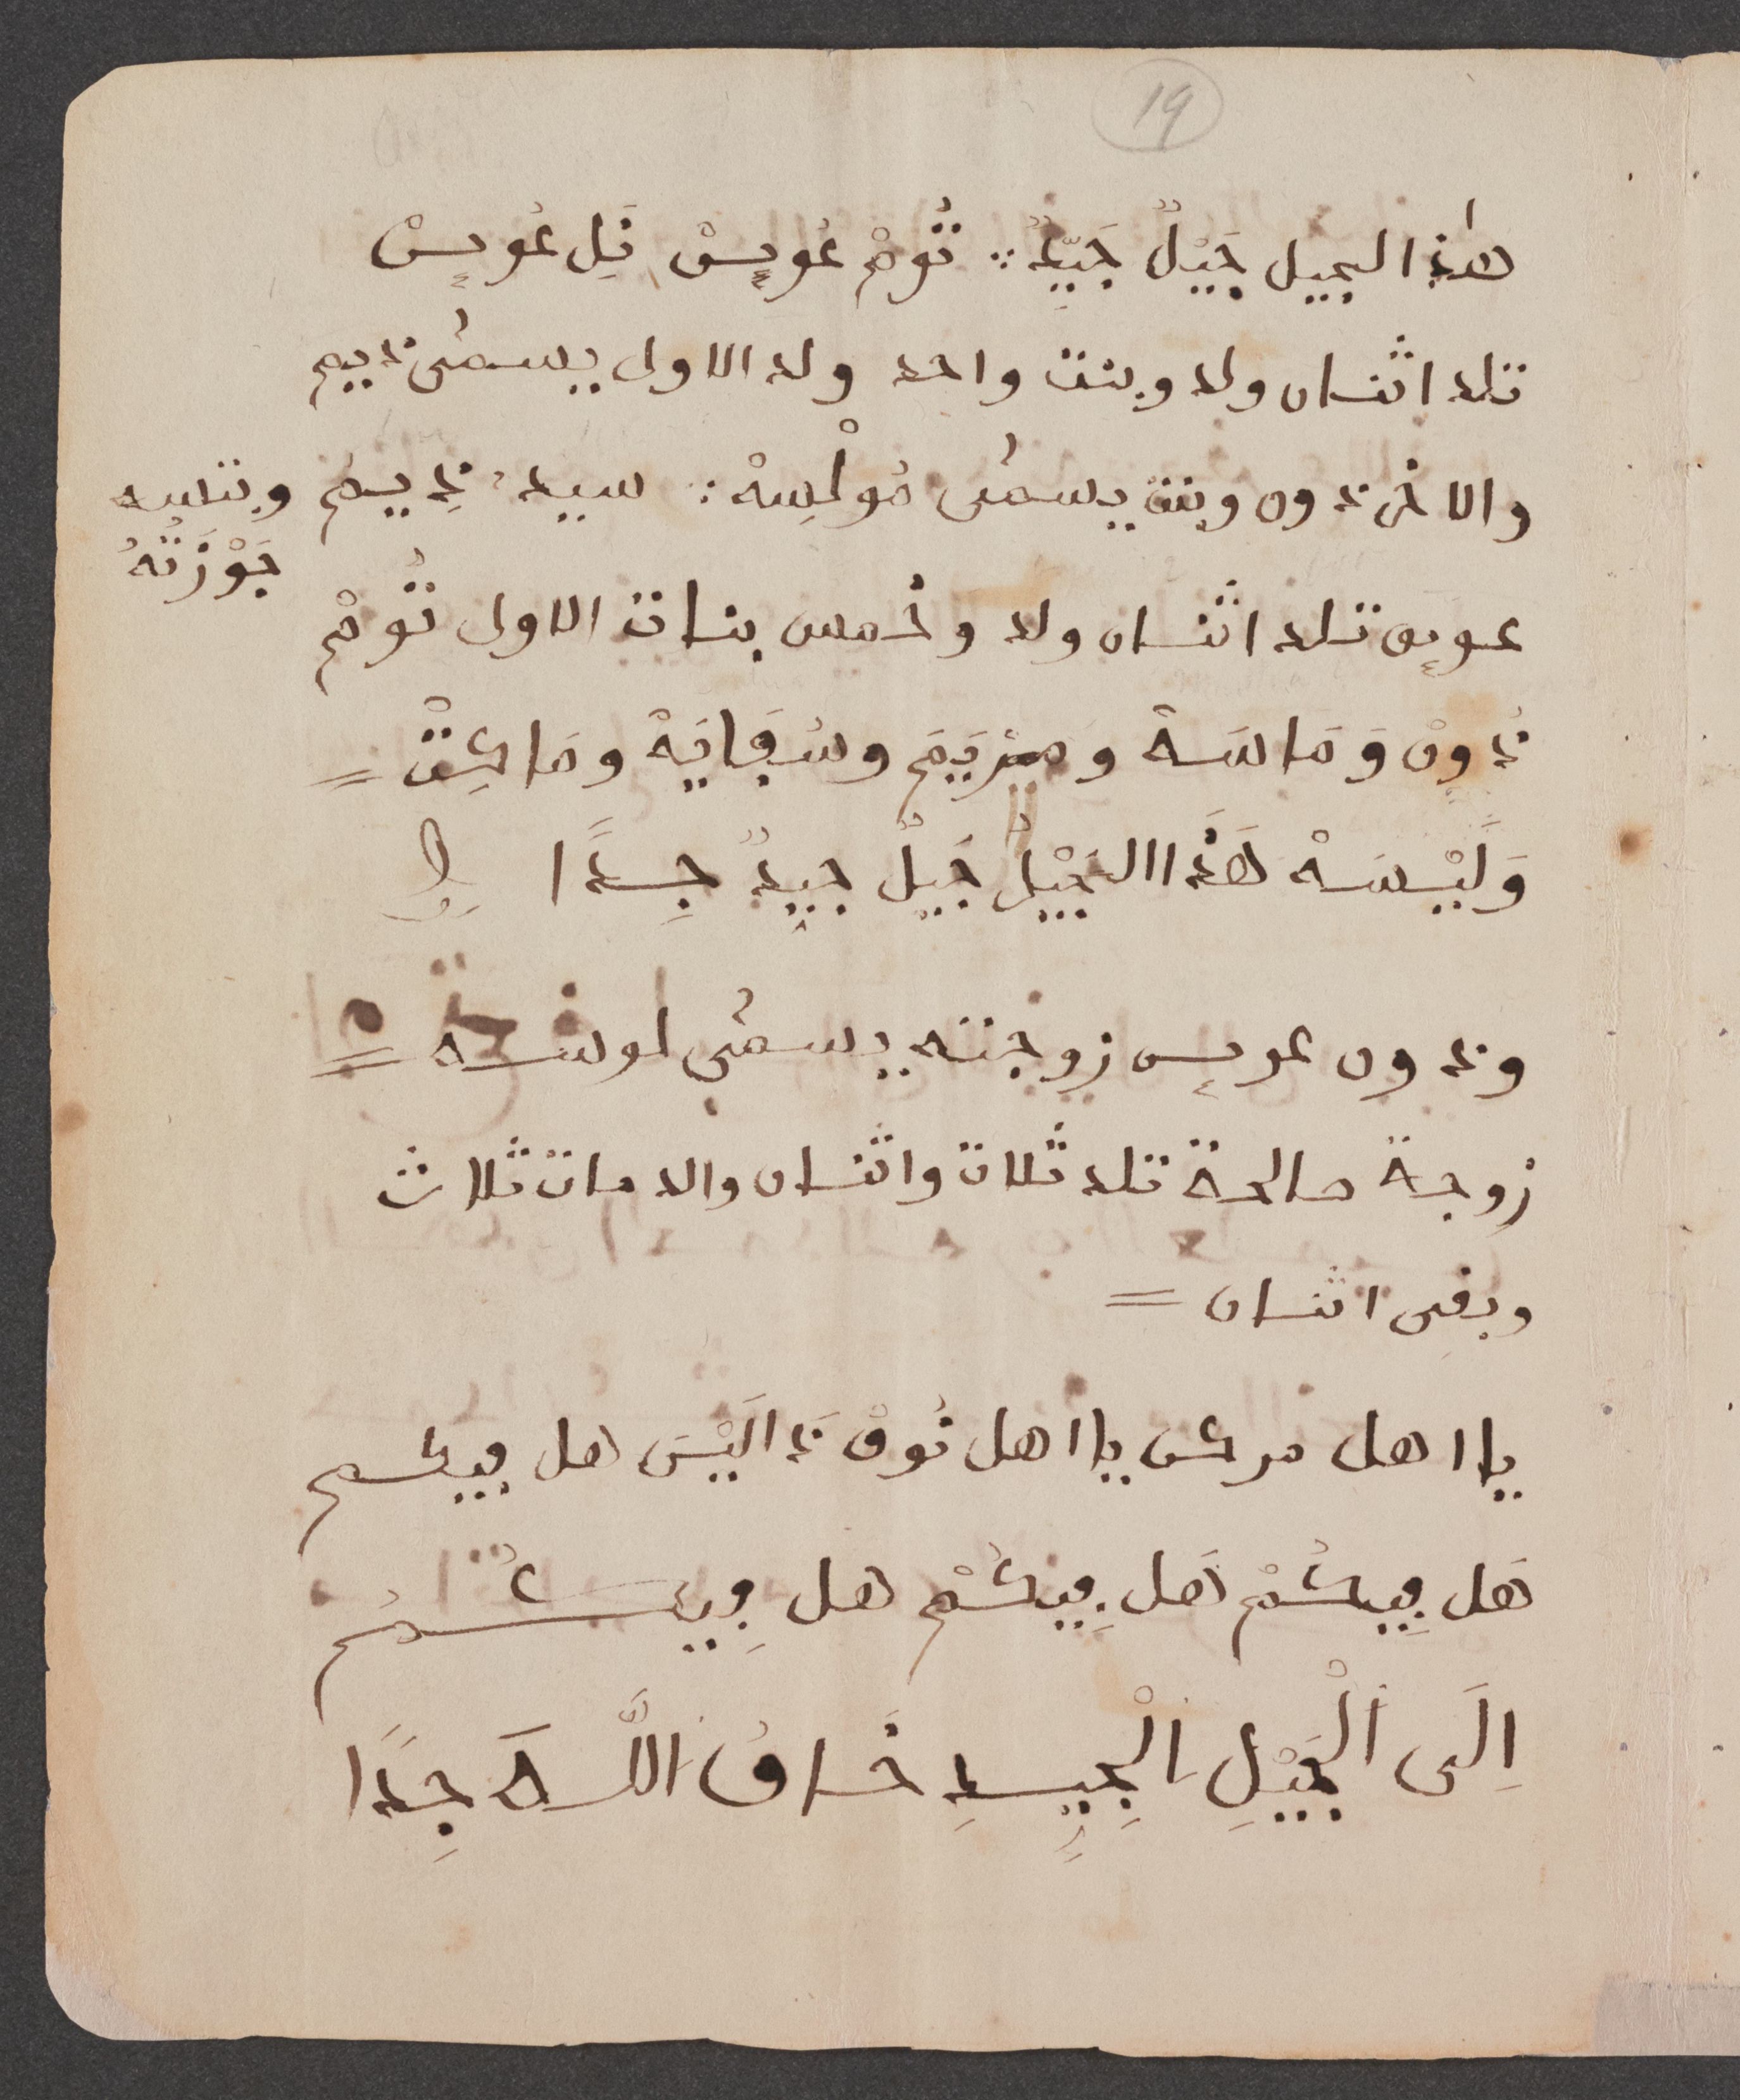 19
هٰذا الجيل جَيْلٌ جَيِّدٌ ∴ تُومْ عُوِيسْ نَِل عُوِيسْ
تلد اثنان ولد وبنت واحد ولد الاول يسمُى نديم
والاخر ندون وبنت يسمُى مُولْسِهْ ∴ سيد نِدِيمُ وبنسبه
جَوْزَتَهُ
عويس تلد اثنان ولد وخمس بنات الاول تُومْ
نُدون وَمَاسَهْ ومِرْيَمَ وسُڢَايَهْ ومَاكِتْ =
وَلَيْسَهْ هَذَا الجَيْلُ جَيلٌ جيدٌ جِدًّا
وندون عويس زوجته يسمُى لوسه =
زوجة صالحة تلد ثلاث واثنان والد مات ثلاث
وبفى اثنان =
يا اهل مركس يا اهل نُوڢْ نَدَالَيْسَ هل ڢيكم
هَل ڢِيكُمْ هَل ڢِيكُمْ هل ڢِيكُمُ
اِلَى الْجَيْلِ الْجِيِدِ خَاڢُ اللَّهَ جِدًا